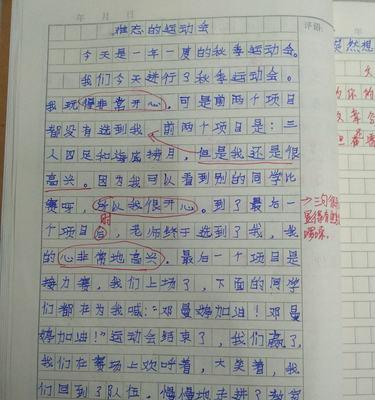 年 月 日
评语
难忘的运动会
今天是一年一度的秋季运动会。
我们今天进行了秋季运动会。
我玩得非常开心。可是前两个项目
都没有选到我。前两个项目是:三
人四足和海底捞月,但是我还是很
高兴。因为我可以看到别的同学比
赛呀,所以我很开心。到了最后一
个项目时,老师终于选到了我,我
的心非常地高兴。最后一个项目是
接力赛,我们上场了,下面的同学
们都在为我喊:“邓曼婷加油!邓曼
婷加油!”运动会结束了,我们赢了,
我们在赛场上欢呼着,大笑着,我
们回到了队伍,慢慢地走进了教室
三个
突然想